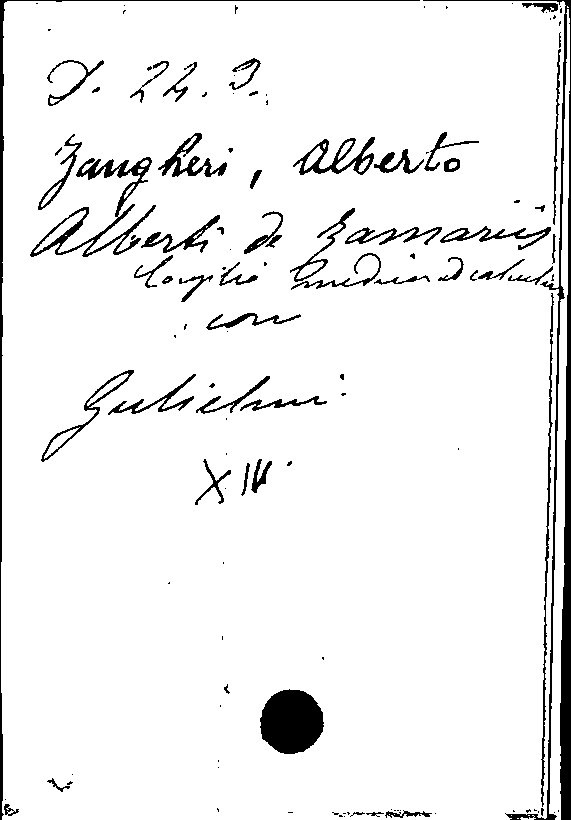 D. 22. 3.
Zangheri, Alberto
Alberti de Zamariis
Consilia
con
Gulielmi
XIV.